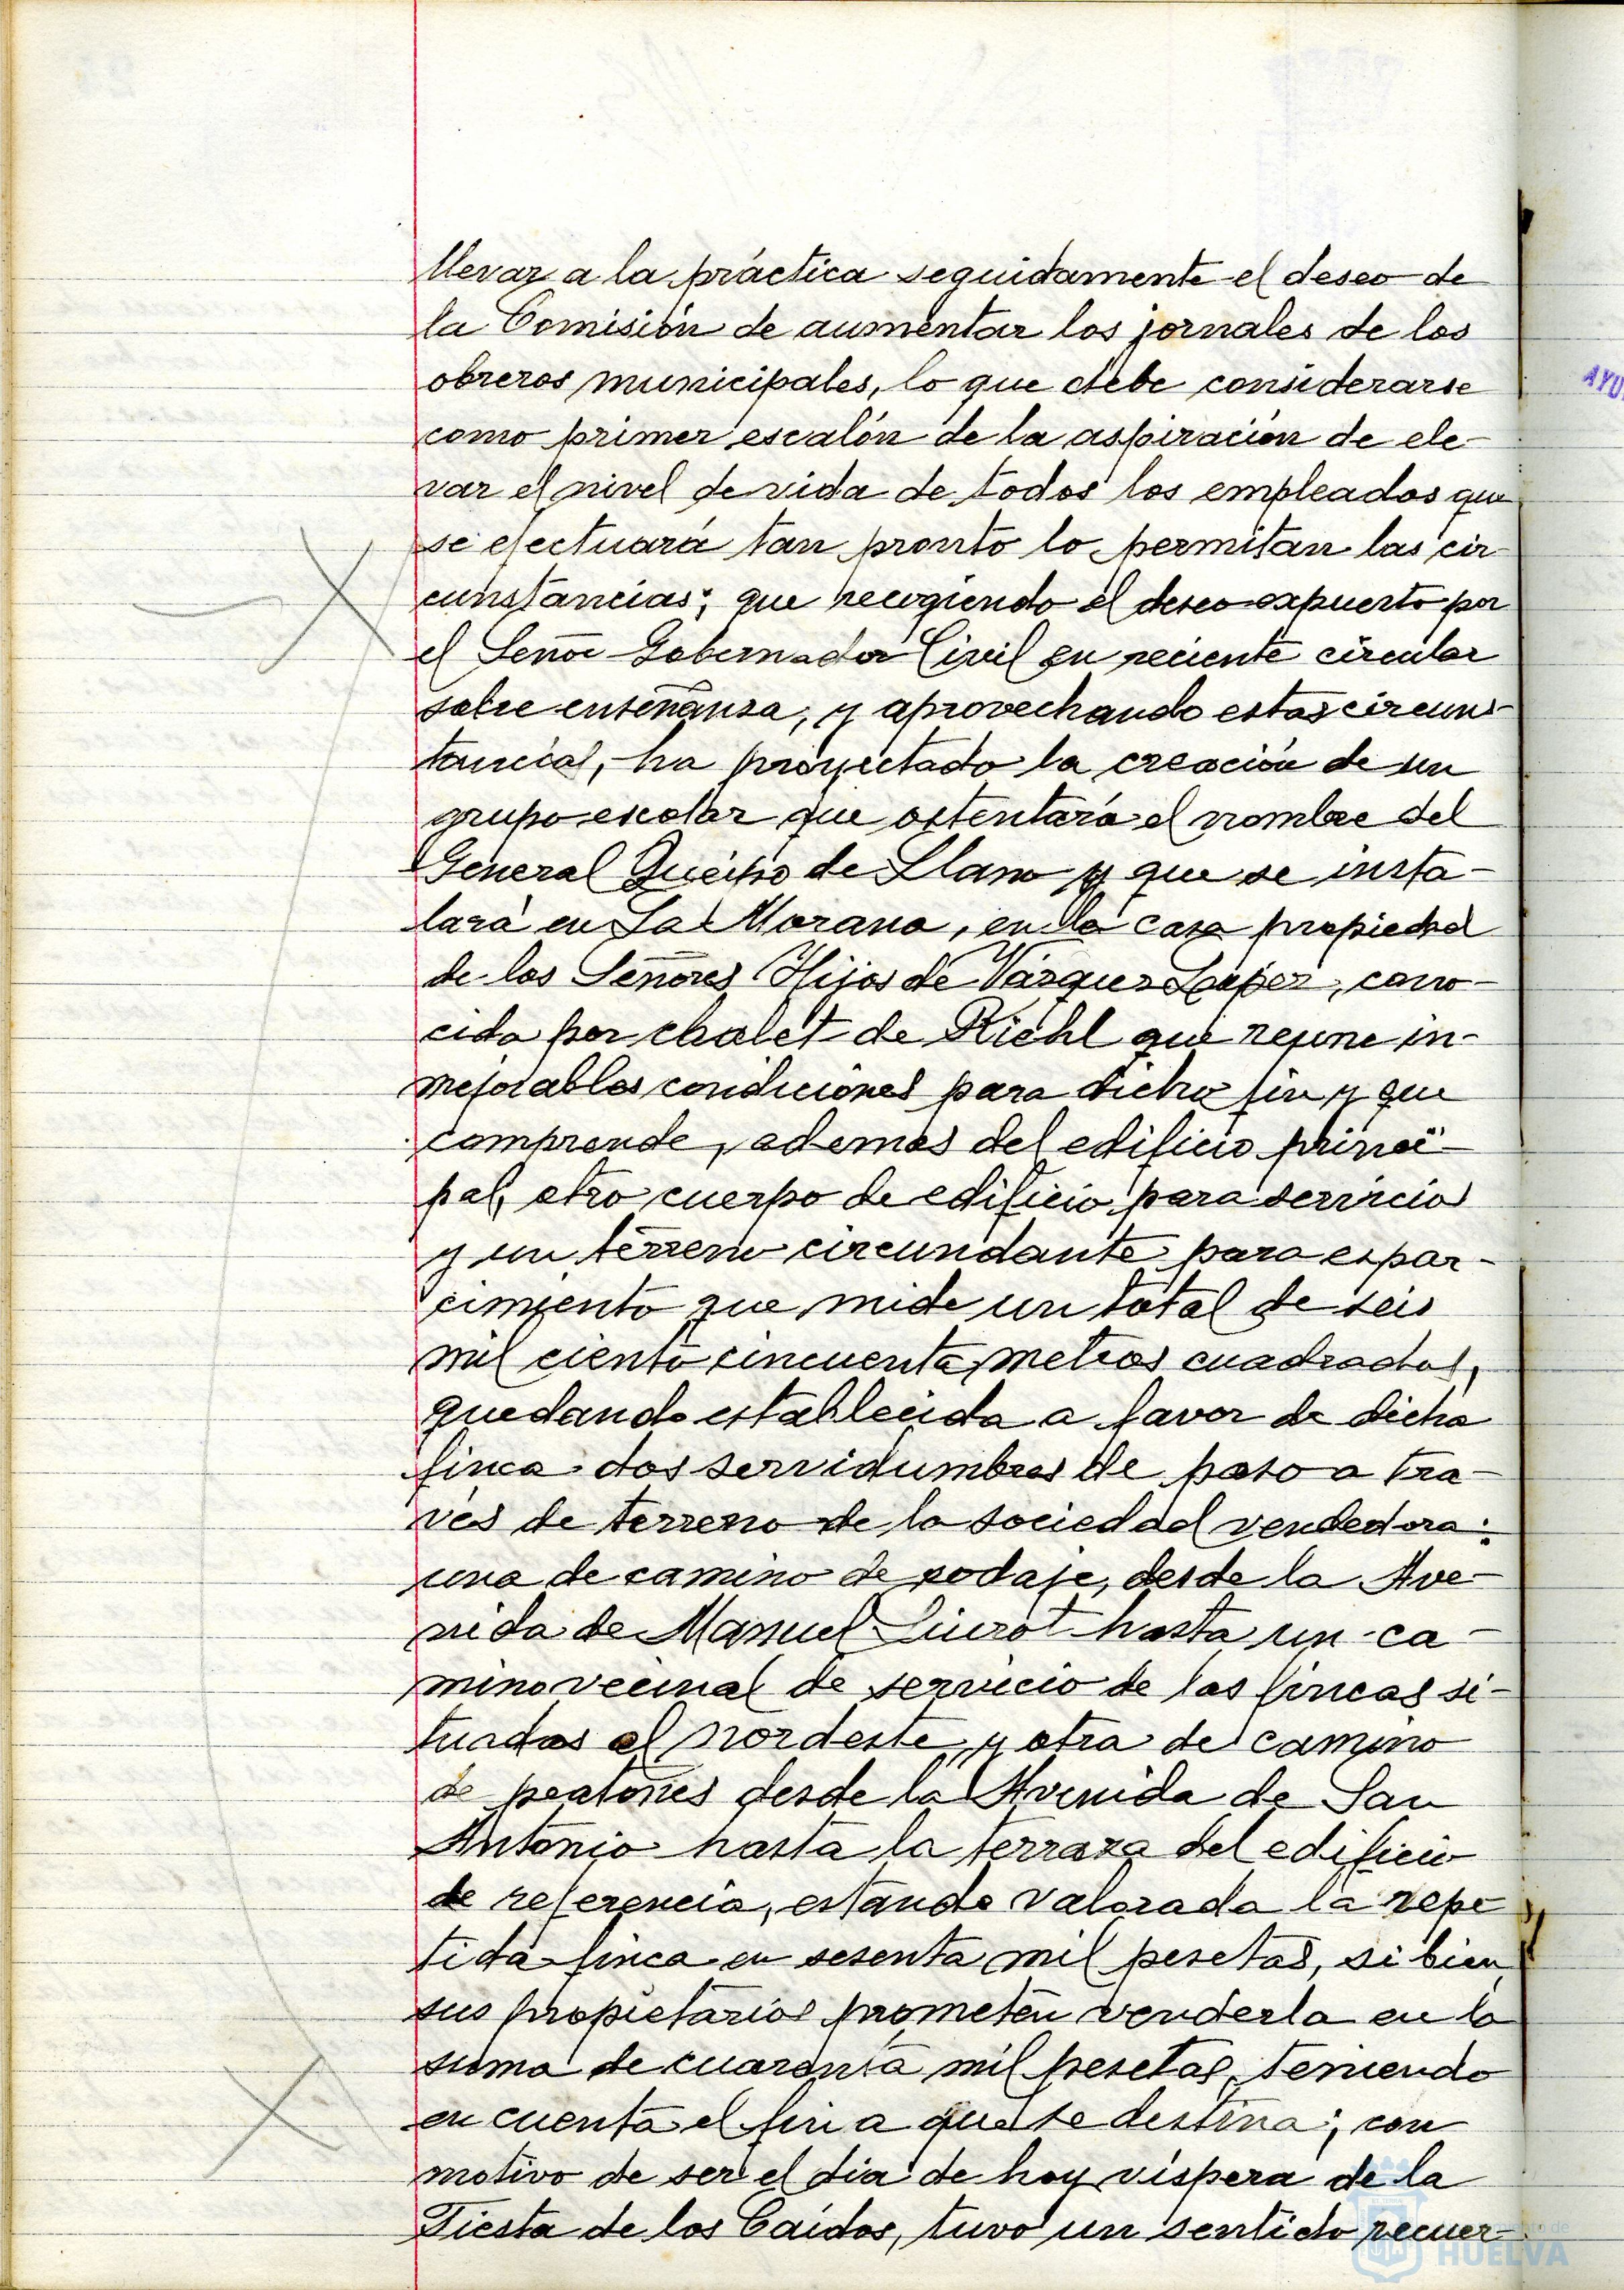 llevar a la práctica seguidamente el deseo de
la Comisión de aumentar los jornales de los
obreros municipales, lo que debe considerarse
como primer escalón de la aspiración de ele-
var el nivel de vida de todos los empleados que
se efectuará tan pronto lo permitan las cir-
cunstancias; que recogiendo el deseo expuesto por
el Señor Gobernador Civil en reciente circular
sobre enseñanza, y aprovechando estas circuns-
tancias, ha proyectado la creación de un
grupo escolar que ostentará el nombre del
General Queipo de Llano y que se insta-
lará en La Morana, en la casa propiedad
de los Señores Hijos de Vázquez López, cono-
cida por chalet de Riehl que reune in-
mejorables condiciones para dicho fin y que
comprende, ademas del edificio princi-
pal, otro cuerpo de edificio para servicios
y un terreno circundante para espar-
cimiento que mide un total de seis
mil ciento cincuenta metros cuadrados,
quedando establecida a favor de dicha
finca dos servidumbres de paso a tra-
vés de terreno de la sociedad vendedora:
una de camino de rodaje, desde la Ave-
nida de Manuel Siurot hasta un ca-
mino vecinal de servicio de las fincas si-
tuadas al nordeste, y otra de camino
de peatones desde la Avenida de San
Antonio hasta la terraza del edificio
de referencia, estando valorada la repe
tida finca en sesenta mil pesetas, si bien
sus propietarios prometen venderla en la
suma de cuarenta mil pesetas, teniendo
en cuenta el fin a que se destina; con
motivo de ser el dia de hoy víspera de la
Fiesta de los Caídos, tuvo un sentido recuer-
AYU
Ayuntamiento de
HUELVA